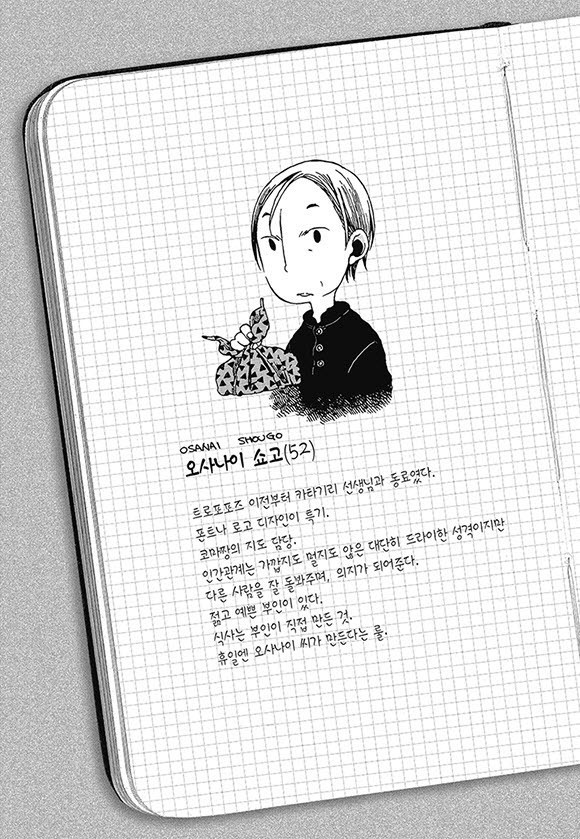 OSANAI SHOUGO
오사나이 쇼고(52)
트로포포즈 이전부터 카타기리 선생님과 동료였다.
폰트나 로고 디자인이 특기.
코마짱의 지도 담당.
인간관계는 가깝지도 멀지도 않은 대단히 드라이한 성격이지만
다른 사람을 잘 돌봐주며, 의지가 되어준다.
젊고 예쁜 부인이 있다.
식사는 부인이 직접 만든 것.
휴일엔 오사나이 씨가 만든다는 룰.